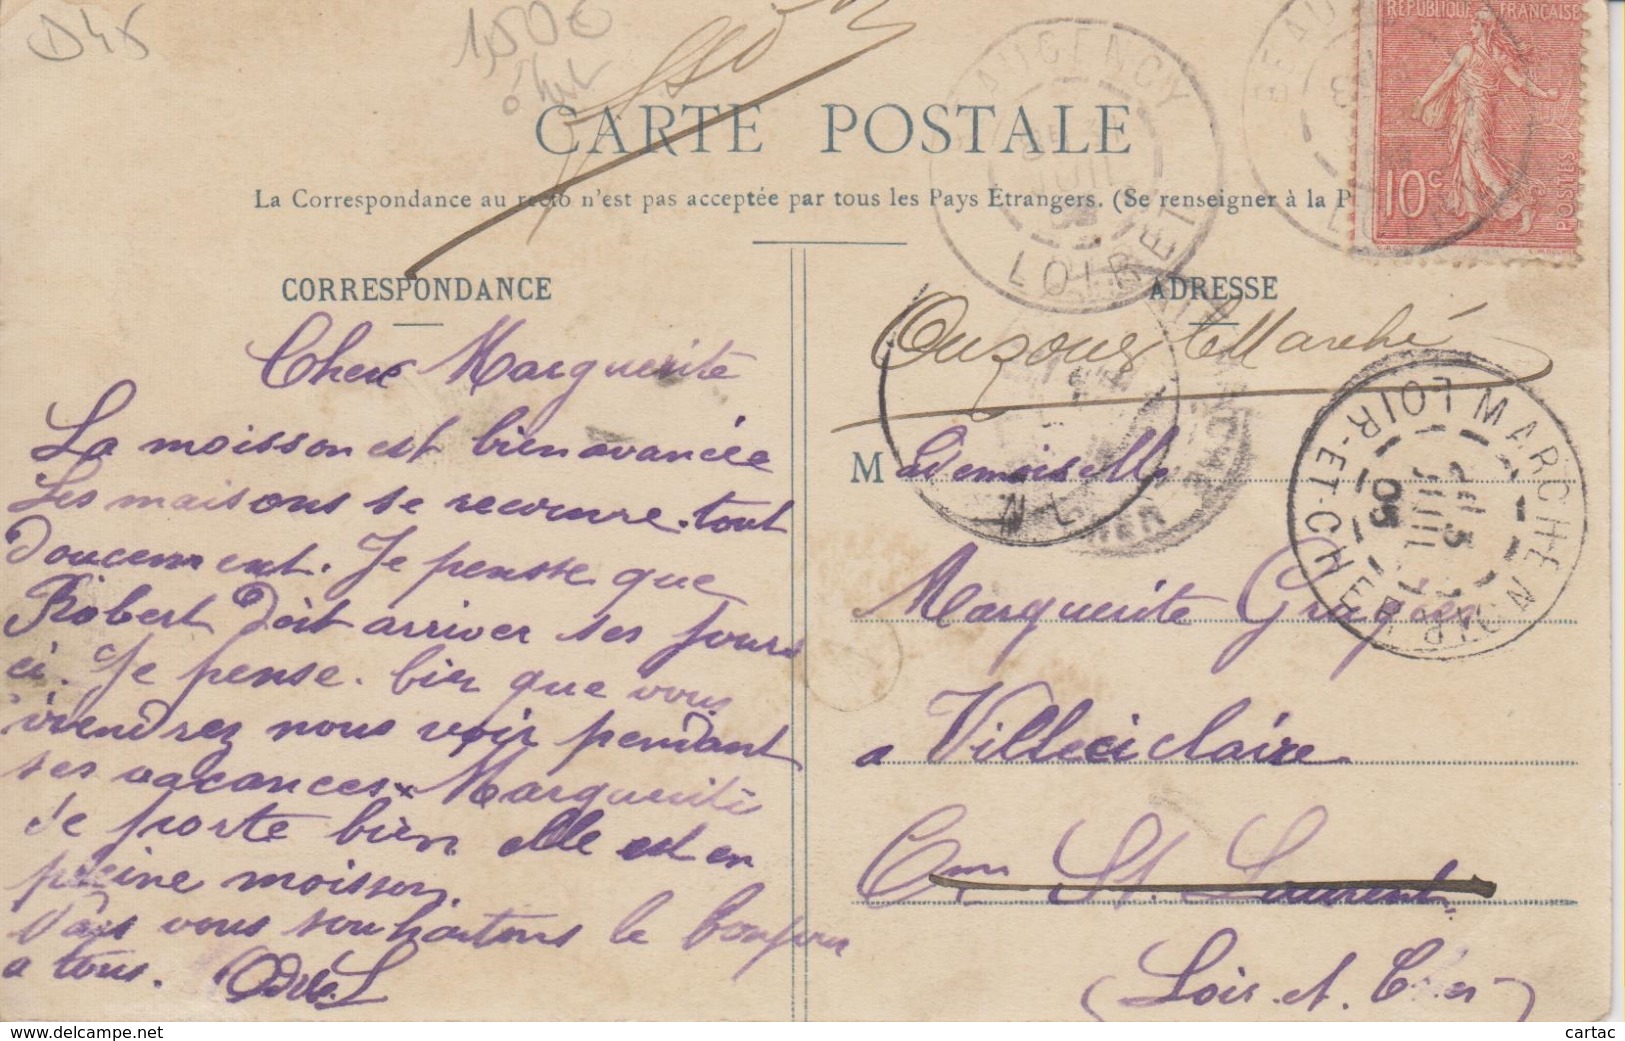 D45
1,50€
CARTE POSTALE
La Correspondance au recto n'est pas acceptée par tous les Pays Étrangers. (Se renseigner à la P
RÉPUBLIQUE FRANÇAISE
10c
POSTES
BEAUGENCY
LOIRET
CORRESPONDANCE
Chere Marguerite
La moisson est bien avancée
Les maisons se recouvre tout
doucement. Je pensse que
Robert doit arriver ses jours
ci. Je pense bien que vous
viendrez nous voir pendant
ses vacances x Marguerite
se porte bien elle est en
pleine moisson.
vous souhaitons le bonjour
a tous.
ADRESSE
Ouzouer Marché
Mademoiselle
Marguerite
a Villeciclaire
Cne St. Laurent
(Loir et Cher)
MARCHENOIR
LOIR-ET-CHER
JUIL
05
cartac